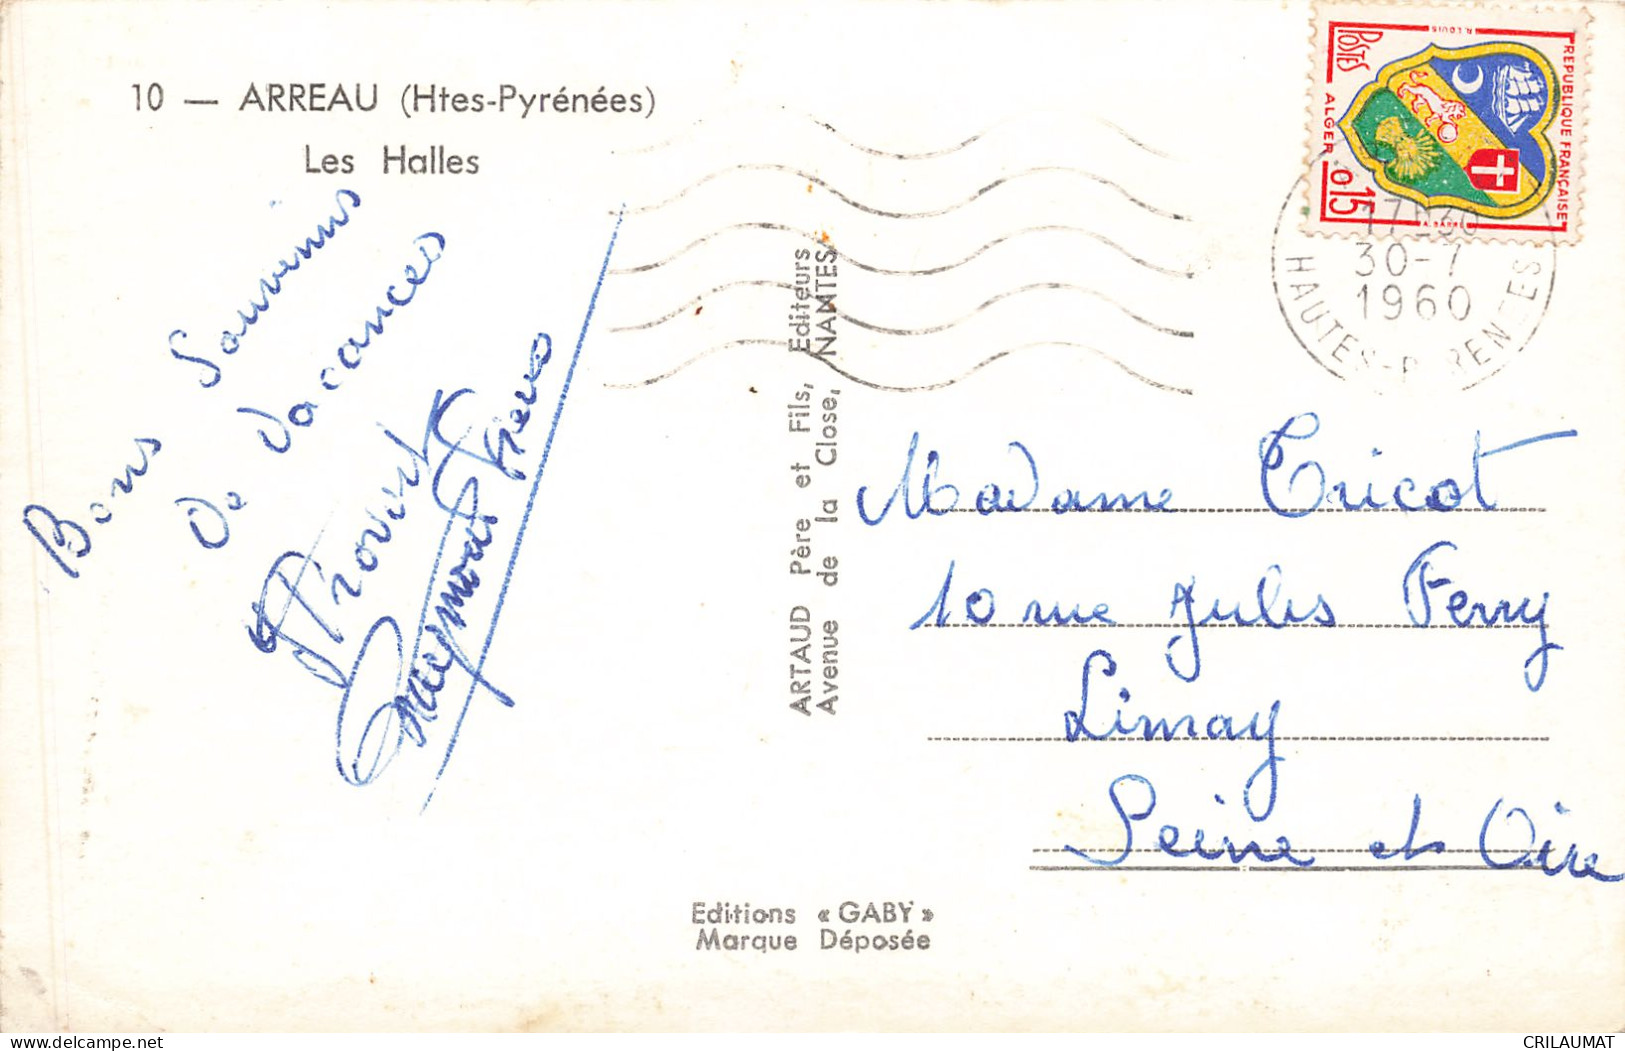 10 — ARREAU (Htes-Pyrénées)
Les Halles
Bons Souvenirs
De Vacances
Raymond
ARTAUD Père et Fils, Editeurs
Avenue de la Close, NANTES
Editions « GABY »
Marque Déposée
REPUBLIQUE FRANÇAISE
POSTES
ALGER
0,15
R. LOUIS
17H30
30-7
1960
HAUTES-PYRENEES
Madame Tricot
10 rue Jules Ferry
Limay
Seine et Oise
delcampe.net
CRILAUMAT